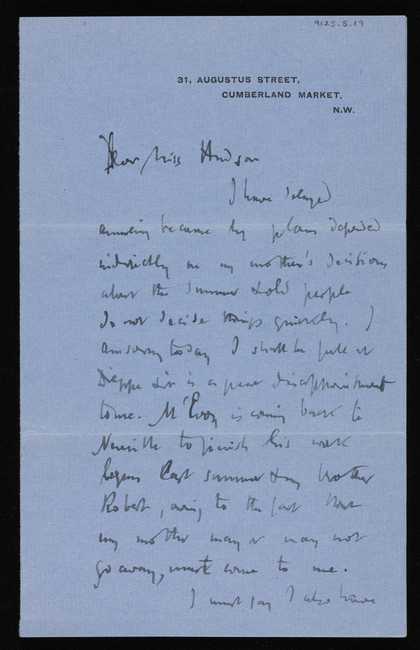 9125.5.19
31, AUGUSTUS STREET,
CUMBERLAND MARKET,
N.W.
Dear Miss Hudson
I have delayed
answering because my plans depended
indirectly on my mother's decisions
about the summer & old people
do not decide things quickly. I
am sorry to say I shall be full at
Dieppe & it is a great disappointment
to me. McEvoy is coming back to
Neuville to finish his work
begun last summer & my brother
Robert, owing to the fact that
my mother may or may not
go away, must come to me.
I must say I also have